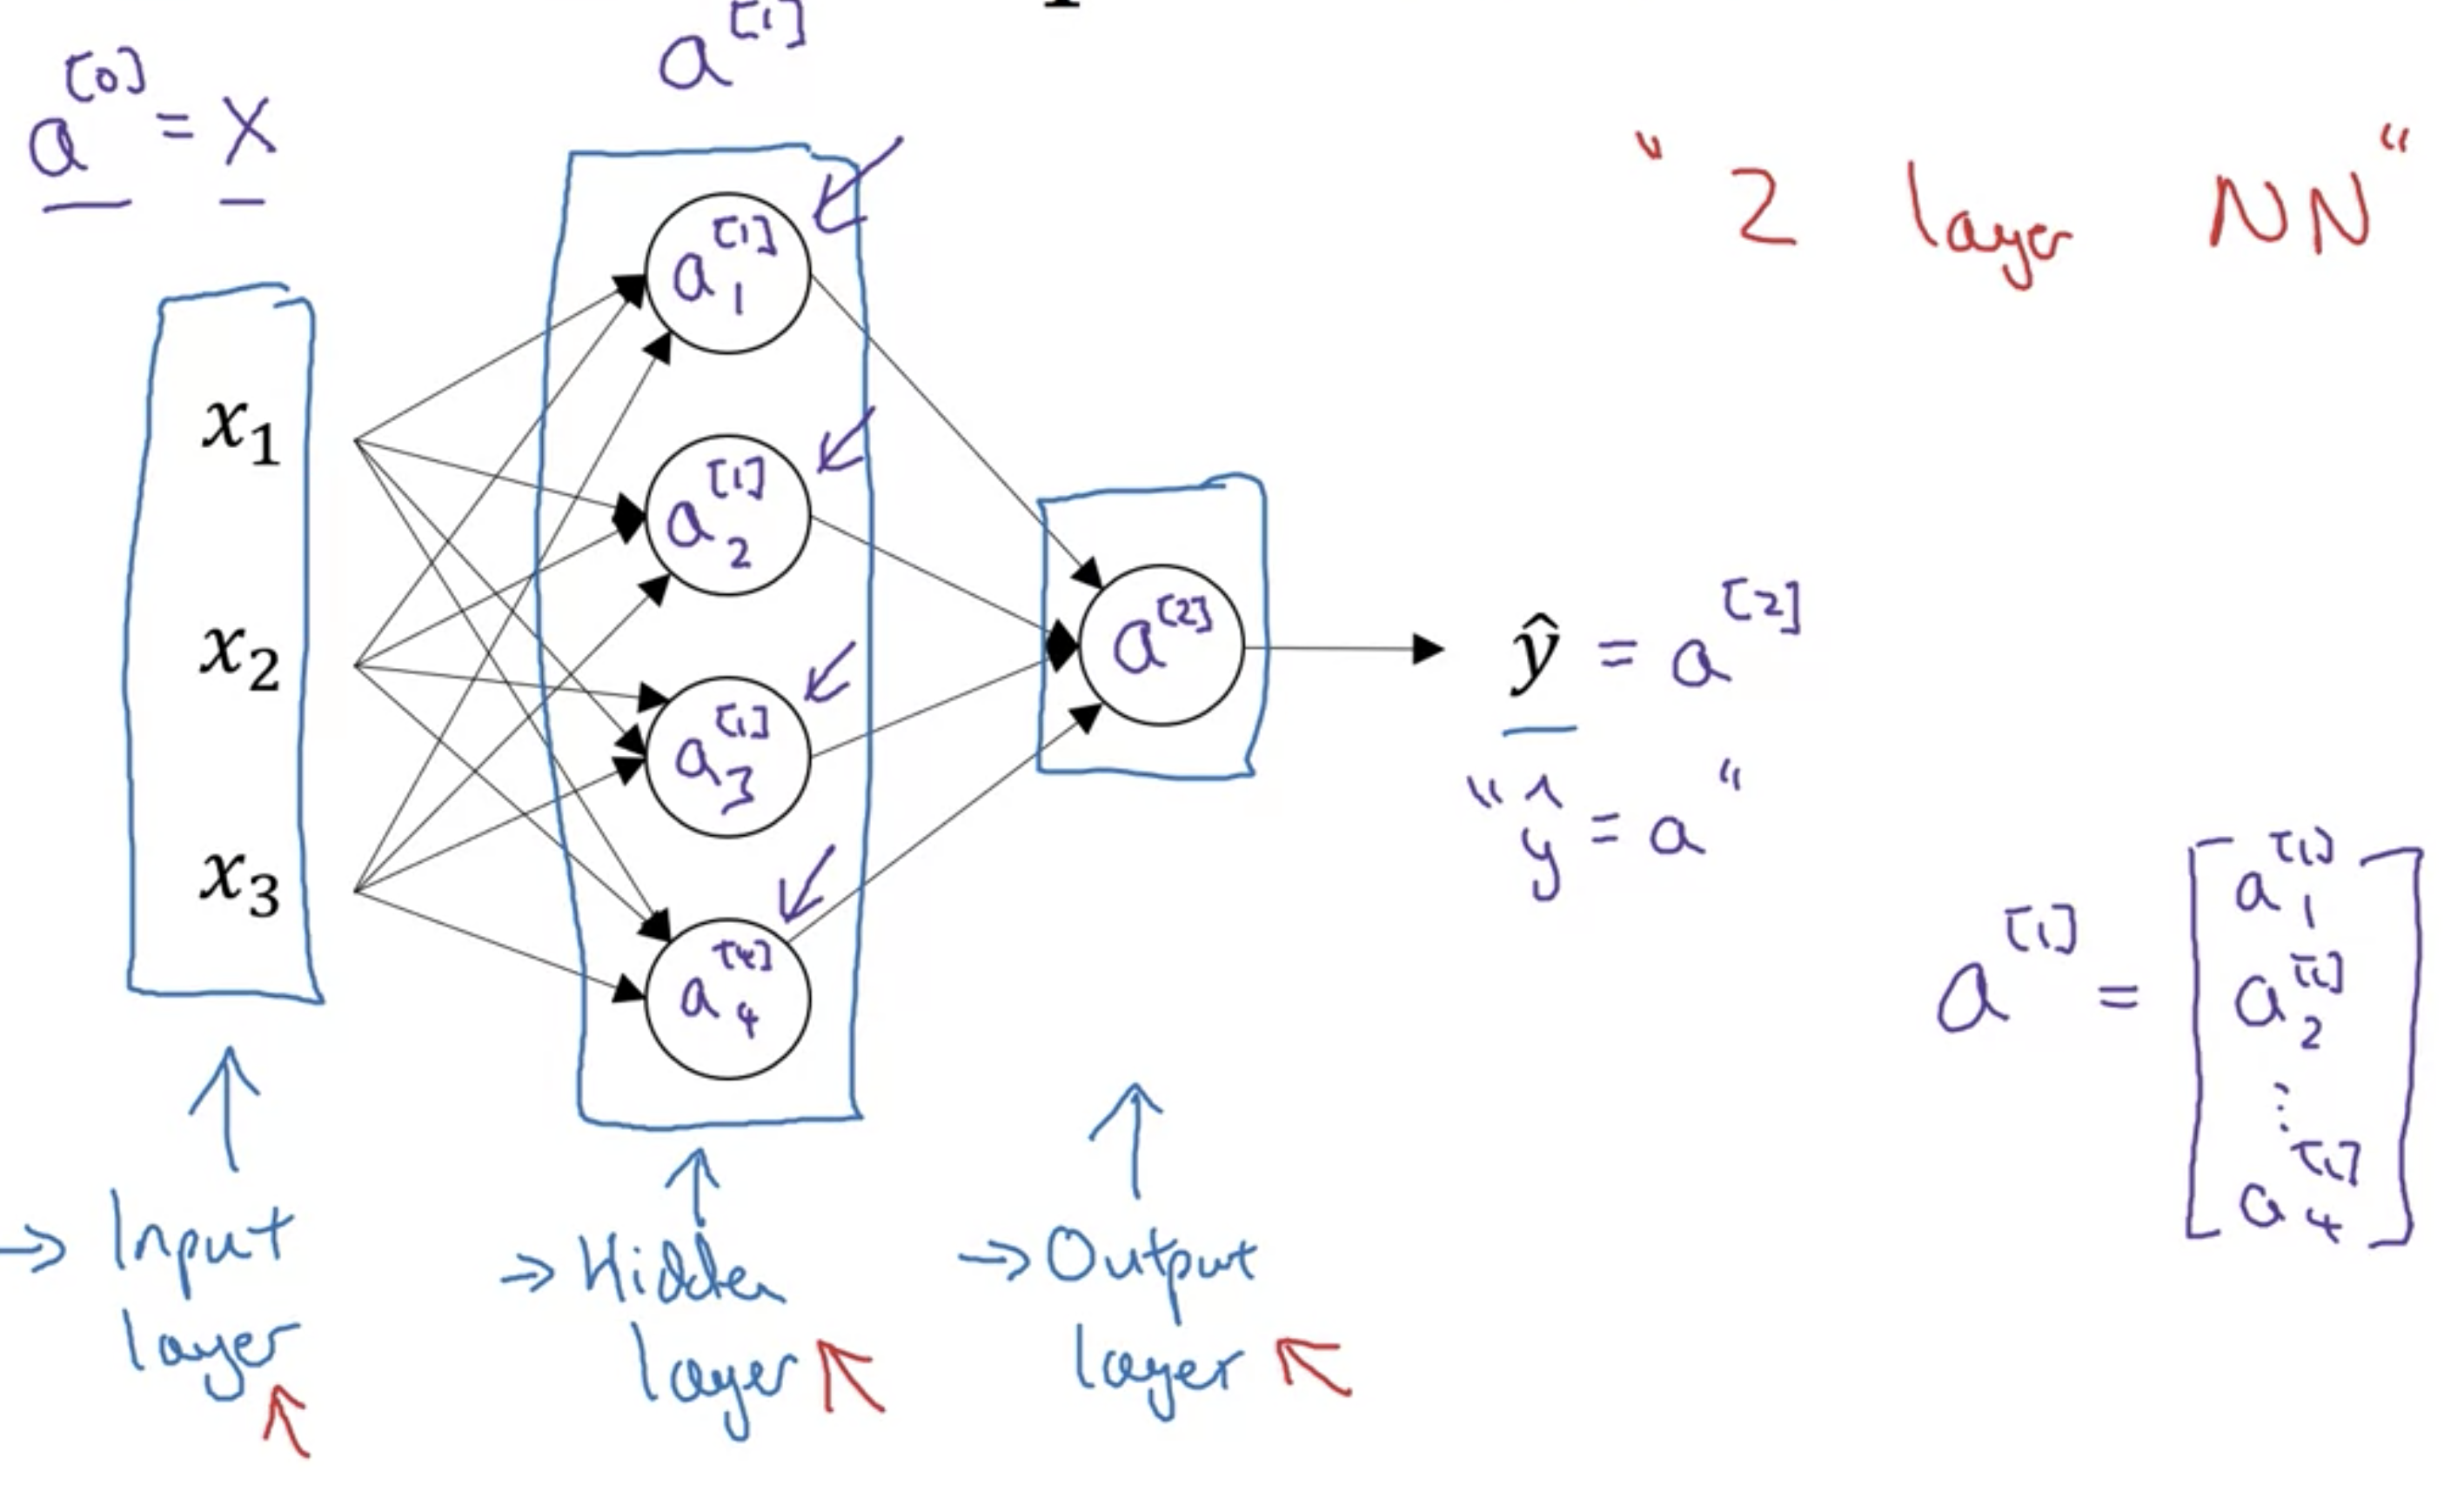 a^[0] = X
a^[1]
" 2 layer NN "
x₁
x₂
x₃
a₁^[1]
a₂^[1]
a₃^[1]
a₄^[4]
a^[2]
ŷ = a^[2]
" ŷ = a "
a^[1] = [ a₁^[1]
a₂^[1]
⋮
a₄^[1] ]
→ Input
layer
→ Hidden
layer
→ Output
layer